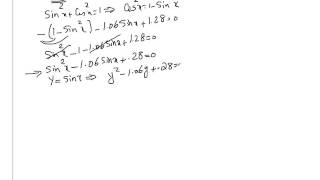 Sin²x + Cos²x = 1 ⇒ Cos²x = 1 - Sin²x
-(1 - Sin²x) - 1.06 Sinx + 1.28 = 0
Sin²x - 1 - 1.06 Sinx + 1.28 = 0
→ Sin²x - 1.06 Sinx + .28 = 0
Y = Sinx ⇒ y² - 1.06y + .28 =